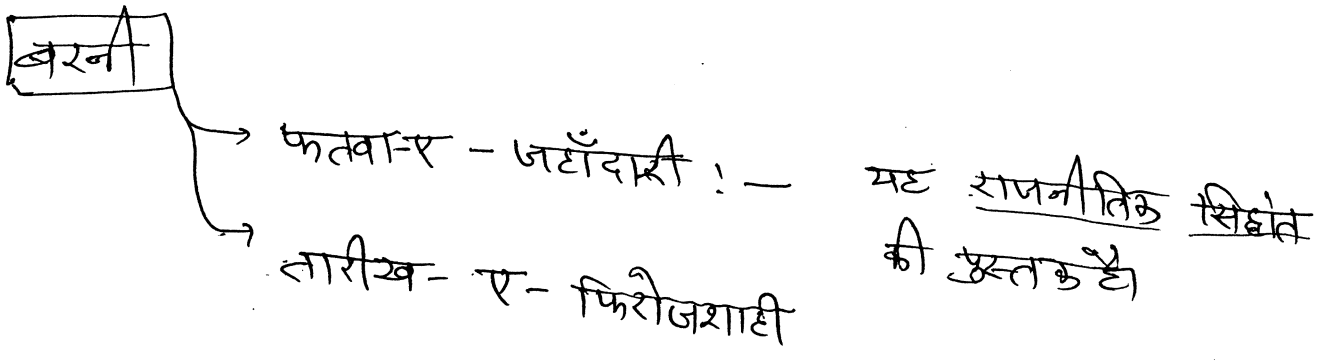 बरनी
फतवा-ए - जहाँदारी : — यह राजनीतिक सिद्धांत
की पुस्तक है।
तारीख - ए - फिरोजशाही